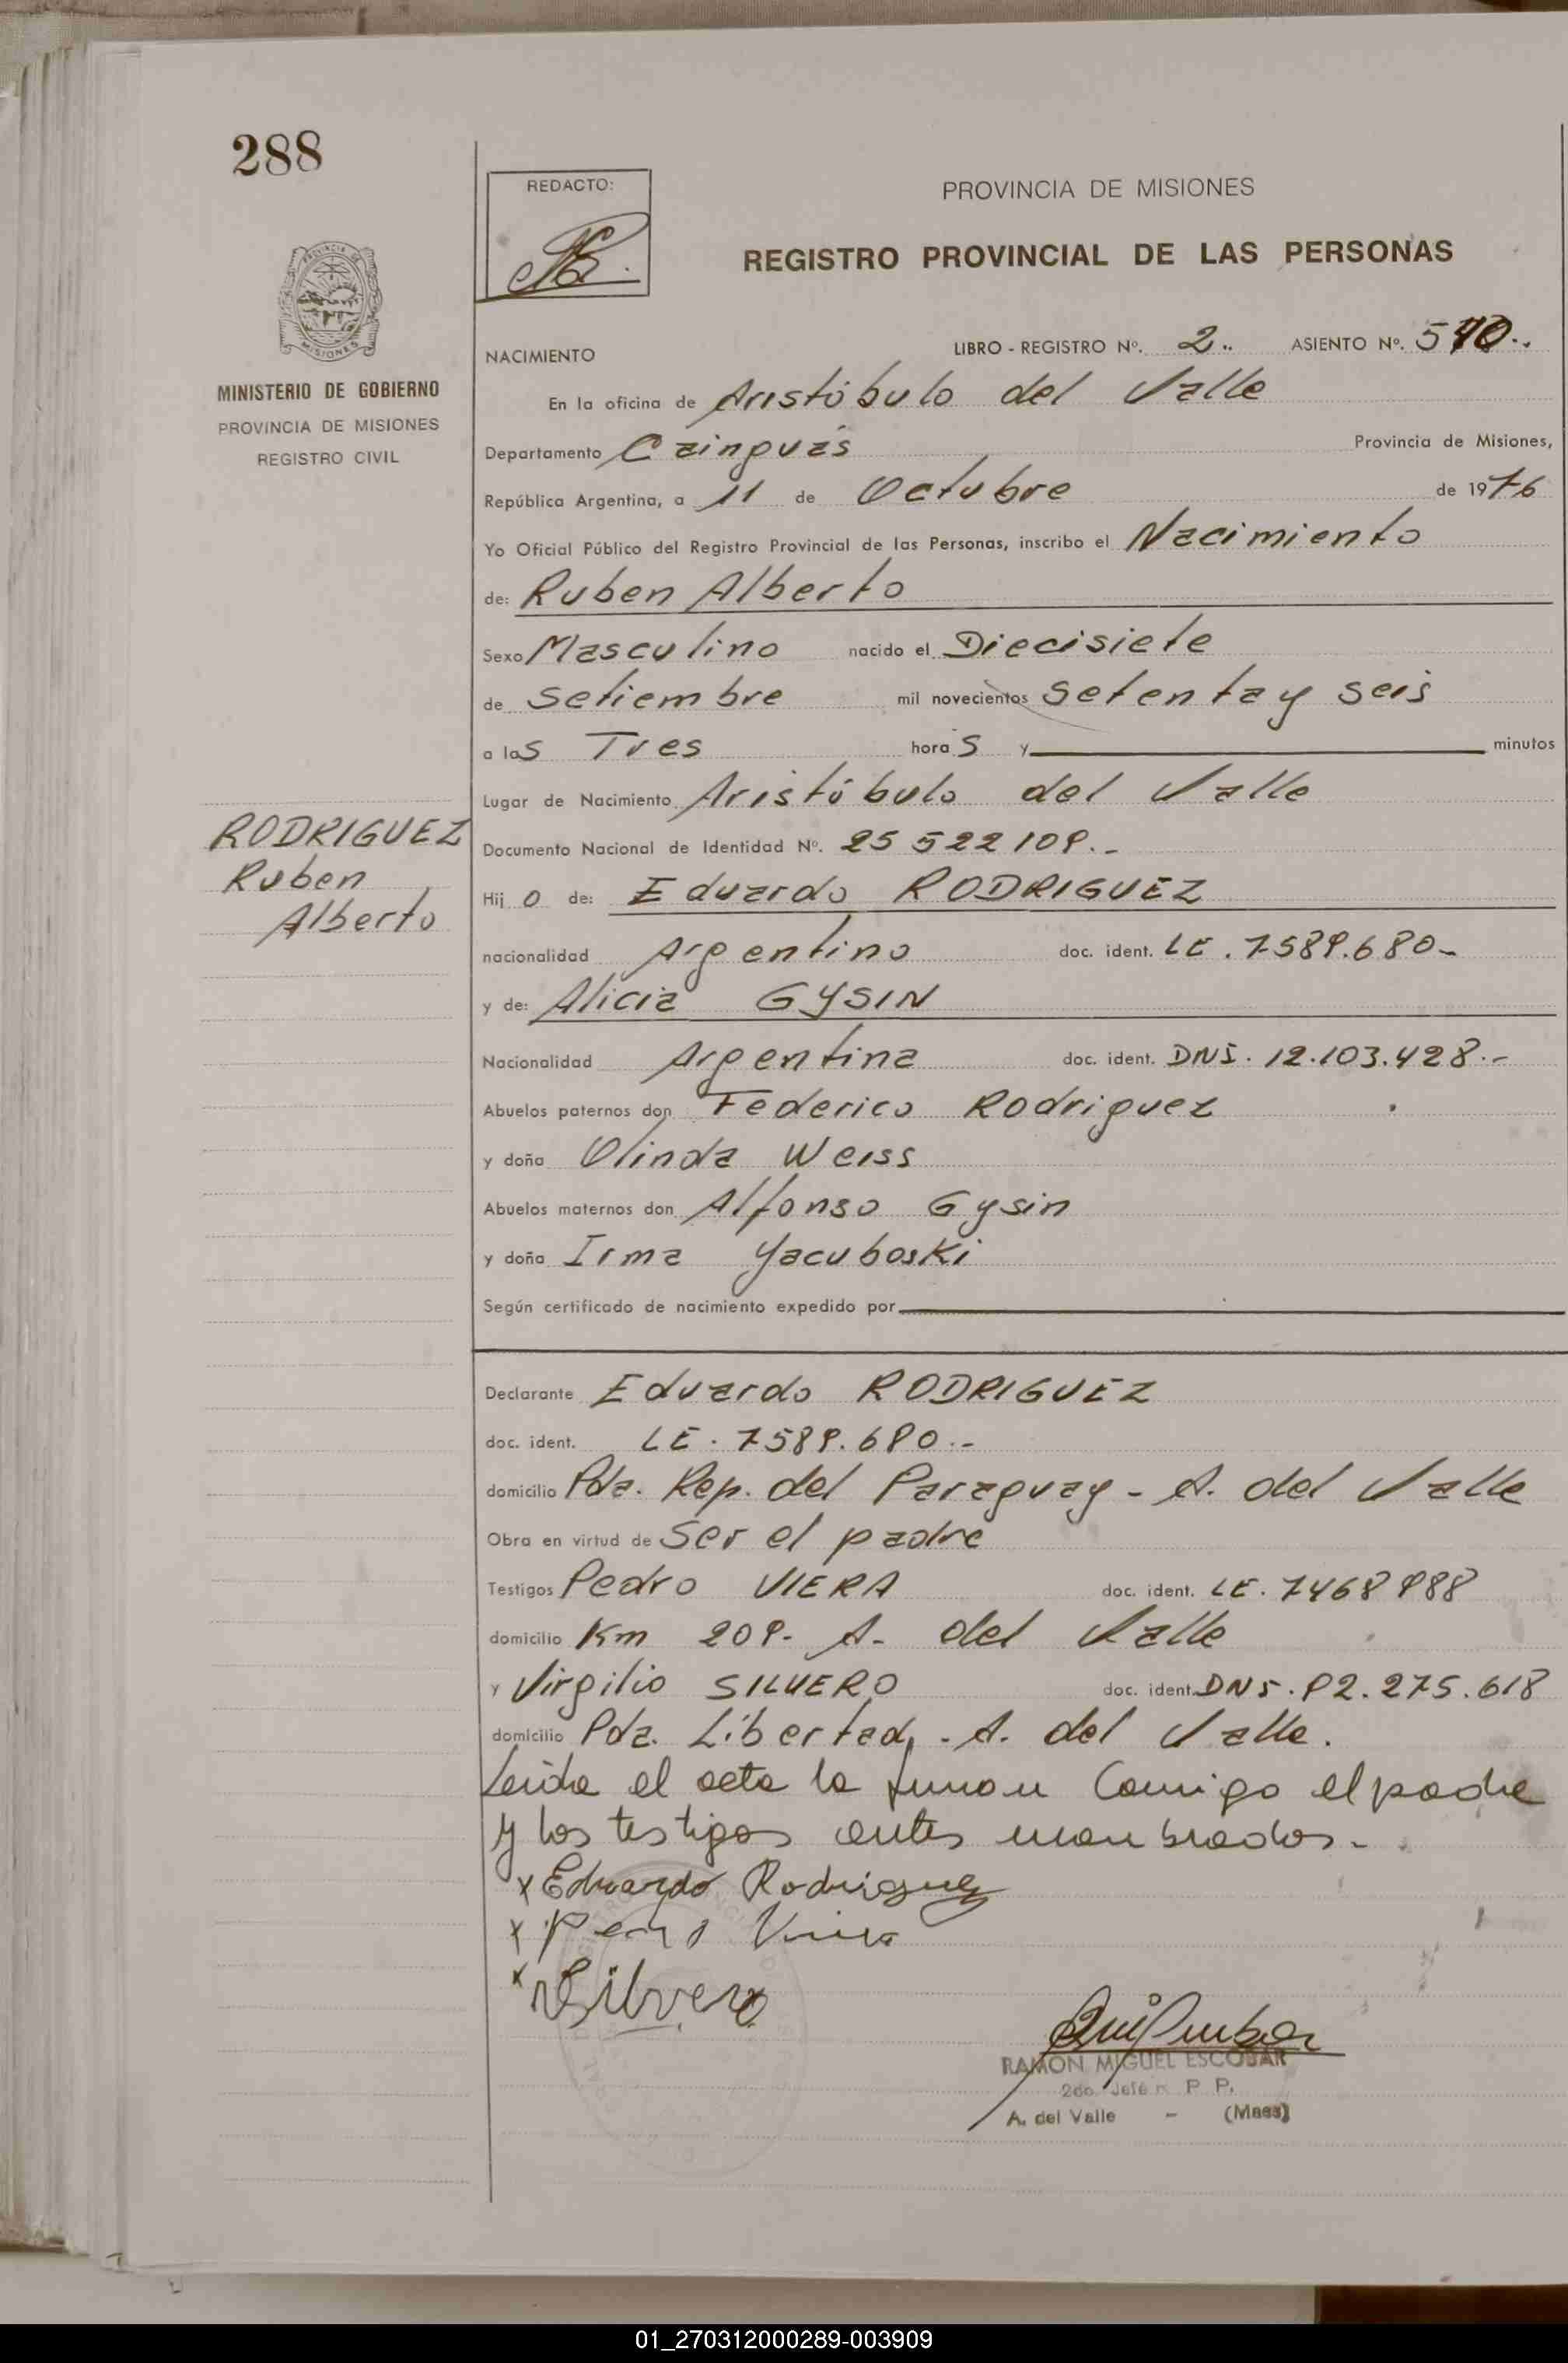 288
REDACTO:
PROVINCIA DE MISIONES
REGISTRO PROVINCIAL DE LAS PERSONAS
PROVINCIA DE
MISIONES
MINISTERIO DE GOBIERNO
PROVINCIA DE MISIONES
REGISTRO CIVIL
NACIMIENTO LIBRO - REGISTRO Nº. 2.. ASIENTO Nº.
En la oficina de Aristóbulo del Valle
Departamento Cainguás Provincia de Misiones,
República Argentina, a 11 de Octubre de 1976
Yo Oficial Público del Registro Provincial de las Personas, inscribo el Nacimiento
de: Ruben Alberto
Sexo Masculino nacido el Diecisiete
de Setiembre mil novecientos setenta y seis
a las Tres horas y minutos
Lugar de Nacimiento Aristóbulo del Valle
RODRIGUEZ
Ruben
Alberto
Documento Nacional de Identidad Nº. 25 522 109.-
Hijo de: Eduardo RODRIGUEZ
nacionalidad Argentino doc. ident. LE. 7589.680-
y de: Alicia GYSIN
Nacionalidad Argentina doc. ident. DNI. 12.103.428.-
Abuelos paternos don Federico Rodriguez
y doña Olinda Weiss
Abuelos maternos don Alfonso Gysin
y doña Irma Yacuboski
Según certificado de nacimiento expedido por
Declarante Eduardo RODRIGUEZ
doc. ident. LE. 7589.680.-
domicilio Pda. Rep. del Paraguay - A. del Valle
Obra en virtud de Ser el padre
Testigos Pedro VIERA doc. ident. LE. 7468988
domicilio Km 209- A. del Valle
y Virgilio SILVERO doc. ident. DNI. 92.275.618
domicilio Pda. Libertad, - A. del Valle.
Leida el acta la firman Comigo el padre
y los testigos antes mombrados.-
x Eduardo Rodriguez
x Pedro Viera
x Silvero
RAMON MIGUEL ESCOBAR
2do. Jefe R. P. P.
A. del Valle - (Mnes)
01_270312000289-003909